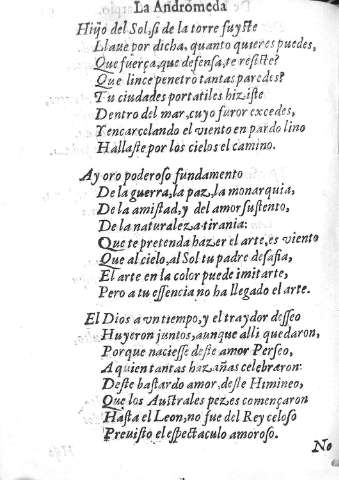 La Andromeda
Hijo del Sol, si de la torre fuyste
Llaue por dicha, quanto quieres puedes,
Que fuerça, que defensa, te resiste?
Que lince penetro tantas paredes?
Tu ciudades portatiles hiziste
Dentro del mar, cuyo furor excedes,
Y encarcelando el viento en pardo lino
Hallaste por los cielos el camino.
Ay oro poderoso fundamento
De la guerra, la paz, la monarquia,
De la amistad, y del amor sustento,
De la naturaleza tirania:
Que te pretenda hazer el arte, es viento
Que al cielo, al Sol tu padre desafia,
El arte en la color puede imitarte,
Pero a tu essencia no ha llegado el arte.
El Dios a vn tiempo, y el traydor desseo
Huyeron juntos, aunque alli quedaron,
Porque naciesse deste amor Perseo,
A quien tantas hazañas celebraron:
Deste bastardo amor, deste Himineo,
Que los Australes pezes començaron
Hasta el Leon, no fue del Rey celoso
Preuisto el espectaculo amoroso.
No